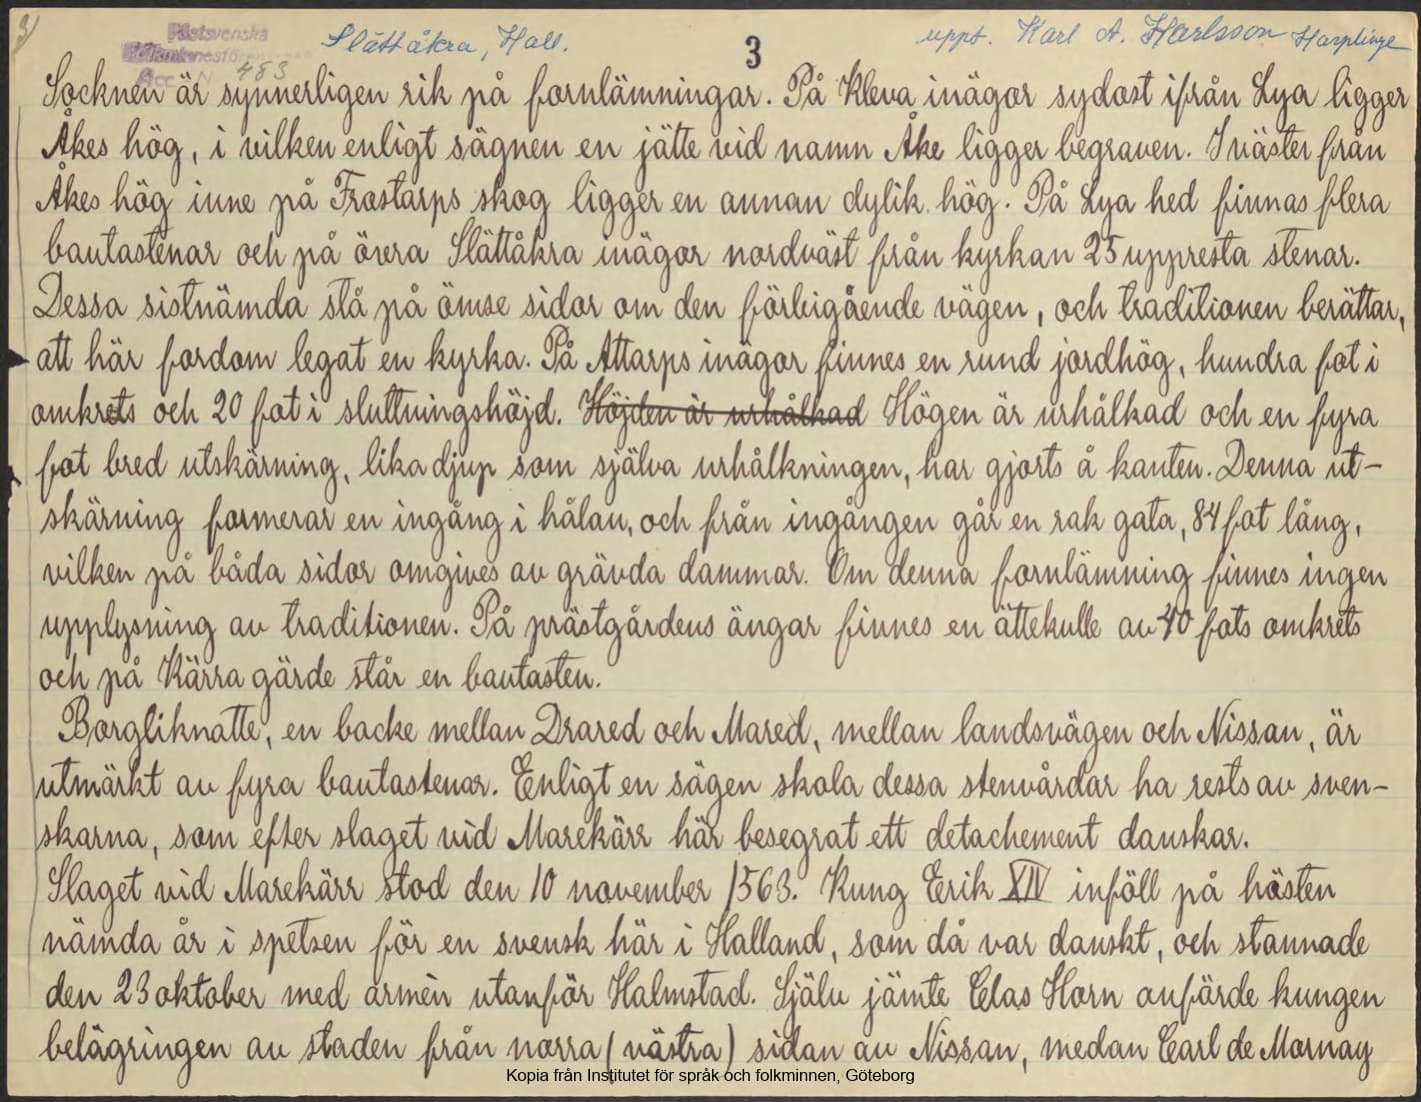 3)
Västsvenska
Folkminnesföreningen
Acc. N 483
Slättåkra, Hall.
3
uppt. Karl A. Karlsson Harplinge
Socknen är synnerligen rik på fornlämningar. På Kleva inägor sydost ifrån Lya ligger
Åkes hög, i vilken enligt sägnen en jätte vid namn Åke ligger begraven. I väster från
Åkes hög inne på Frostarps skog ligger en annan dylik hög. På Lya hed finnas flera
bautastenar och på övra Slättåkra inägor nordväst från kyrkan 25 uppresta stenar.
Dessa sistnämda stå på ömse sidor om den förbigående vägen, och traditionen berättar,
att här fordom legat en kyrka. På Attarps inägor finnes en rund jordhög, hundra fot i
omkrets och 20 fot i sluttningshöjd. Höjden är urhålkad Högen är urhålkad och en fyra
fot bred utskärning, lika djup som själva urhålkningen, har gjorts å kanten. Denna ut-
skärning formerar en ingång i hålan, och från ingången går en rak gata, 84 fot lång,
vilken på båda sidor omgives av grävda dammar. Om denna fornlämning finnes ingen
upplysning av traditionen. På prästgårdens ängar finnes en ättekulle av 40 fots omkrets
och på Kärra gärde står en bautasten.
Borgliknatte, en backe mellan Drared och Mared, mellan landsvägen och Nissan, är
utmärkt av fyra bautastenar. Enligt en sägen skola dessa stenvårdar ha rests av sven-
skarna, som efter slaget vid Marekärr här besegrat ett detachement danskar.
Slaget vid Marekärr stod den 10 november 1563. Kung Erik XIV inföll på hösten
nämda år i spetsen för en svensk här i Halland, som då var danskt, och stannade
den 23 oktober med armèn utanför Halmstad. Själv jämte Clas Horn anfärde kungen
belägringen av staden från norra (västra) sidan av Nissan, medan Carl de Mornay
Kopia från Institutet för språk och folkminnen, Göteborg